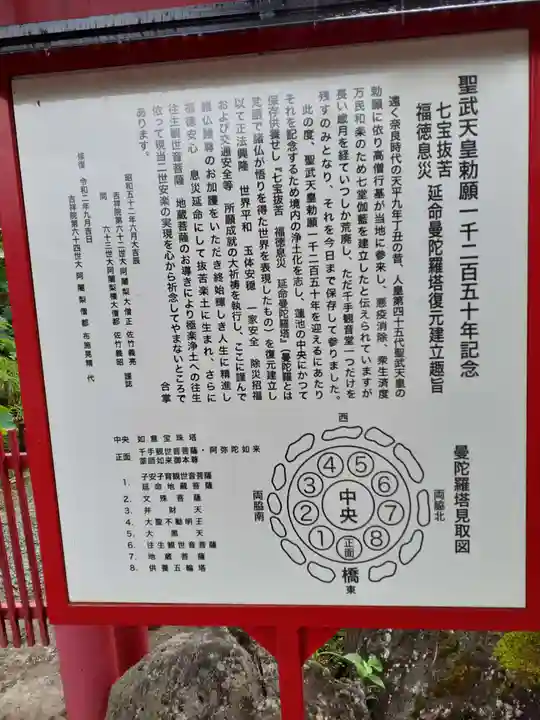 聖武天皇勅願一千二百五十年記念
七宝抜苦
福徳息災
延命曼陀羅塔復元建立趣旨
遠く奈良時代の天平九年丁丑の昔、人皇第四十五代聖武天皇の
勅願に依り高僧行基が当地に参来し、悪疫消除、衆生済度
万民和楽のため七堂伽藍を建立したと伝えられていますが
長い歳月を経ていつしか荒廃し、ただ千手観音堂一つだけを
残すのみとなり、それを今日まで保存して参りました。
この度、聖武天皇勅願一千二百五十年を迎えるにあたり
それを記念するため境内の浄土化を志し、蓮池の中央にかつて
保存供養せし『七宝抜苦 福徳息災 延命曼陀羅塔』(曼陀羅とは
梵語で諸仏が悟りを得た世界を表現したもの)を復元建立し
以て正法興隆 世界平和 玉体安穏 一家安全 除災招福
および交通安全等 所願成就の大祈祷を執行し、ここに謹んで
諸仏諸尊のお加護をいただき終始輝しき人生に精進し
福徳安心 息災延命にして抜苦楽土に生まれ、さらに
往生観世音菩薩 地蔵菩薩のお導きにより極楽浄土への往生
依って現当二世安楽の実現を心から祈念してやまないところで
あります。
合掌
昭和五十二年六月大吉辰
吉祥院第六十二世大阿闍梨大僧正 佐竹義亮 謹誌
同 六十三世大阿闍梨権大僧都 佐竹義昭
修復 令和二年九月吉日
吉祥院第六十四世大阿闍梨僧都 布施晃精 代
曼陀羅塔見取図
西
両脇南
両脇北
中央
正面
橋
東
1
2
3
4
5
6
7
8
中央 如意宝珠塔
正面 千手観世音菩薩・阿弥陀如来
薬師如来御本尊
1. 子安子育観世音菩薩
延命地蔵菩薩
2. 文殊菩薩
3. 弁財天
4. 大聖不動明王
5. 大黒天
6. 往生観世音菩薩
7. 地蔵菩薩
8. 供養五輪塔